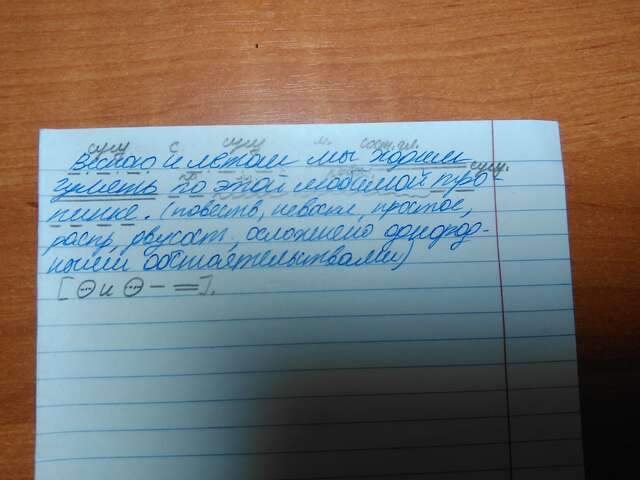 сущ с. сущ м. состн.гл.
Весною и летом мы ходим
сущ.
гулять по этой любимой тро-
пинке. (повеств, невоскл, простое,
распр, двусост., осложнено однород-
ными обстоятельствами)
[ и - = ].